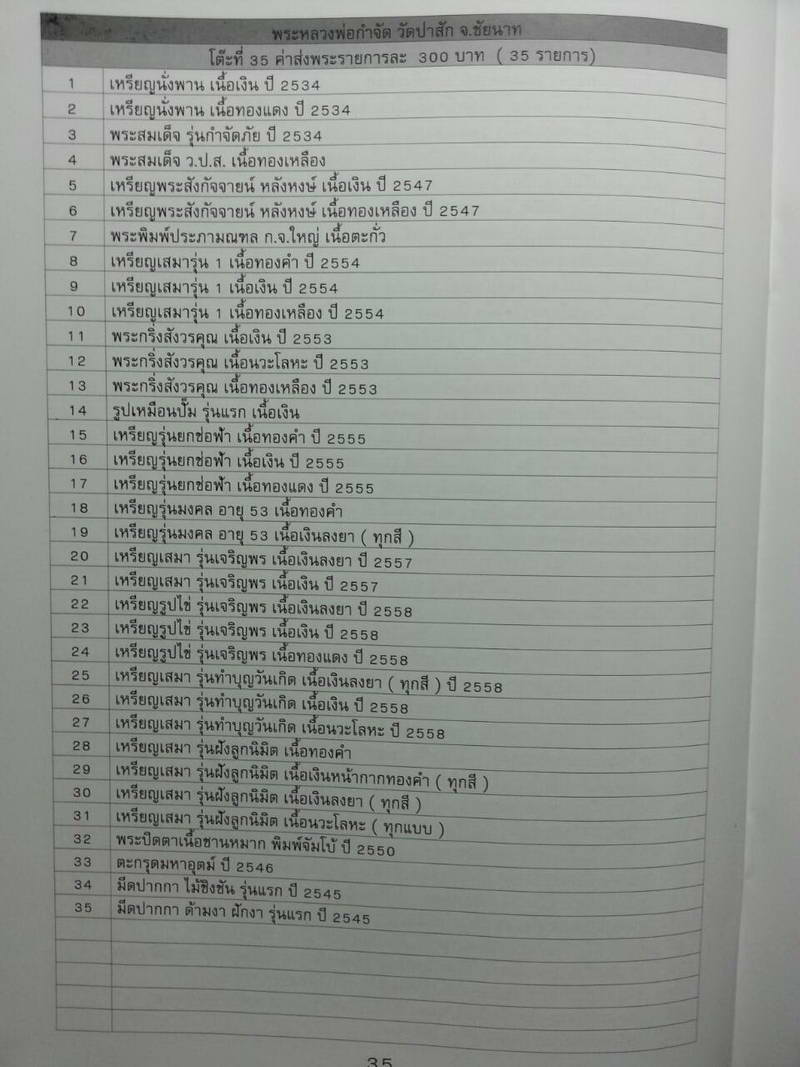 พระหลวงพ่อกำจัด วัดป่าสัก จ.ชัยนาท
โต๊ะที่ 35 ค่าส่งพระรายการละ 300 บาท ( 35 รายการ)
1 เหรียญนั่งพาน เนื้อเงิน ปี 2534
2 เหรียญนั่งพาน เนื้อทองแดง ปี 2534
3 พระสมเด็จ รุ่นกำจัดภัย ปี 2534
4 พระสมเด็จ ว.ป.ส. เนื้อทองเหลือง
5 เหรียญพระสังกัจจายน์ หลังหงษ์ เนื้อเงิน ปี 2547
6 เหรียญพระสังกัจจายน์ หลังหงษ์ เนื้อทองเหลือง ปี 2547
7 พระพิมพ์ประภามณฑล ก.จ.ใหญ่ เนื้อตะกั่ว
8 เหรียญเสมารุ่น 1 เนื้อทองคำ ปี 2554
9 เหรียญเสมารุ่น 1 เนื้อเงิน ปี 2554
10 เหรียญเสมารุ่น 1 เนื้อทองเหลือง ปี 2554
11 พระกริ่งสังวรคุณ เนื้อเงิน ปี 2553
12 พระกริ่งสังวรคุณ เนื้อนวะโลหะ ปี 2553
13 พระกริ่งสังวรคุณ เนื้อทองเหลือง ปี 2553
14 รูปเหมือนปั๊ม รุ่นแรก เนื้อเงิน
15 เหรียญรุ่นยกช่อฟ้า เนื้อทองคำ ปี 2555
16 เหรียญรุ่นยกช่อฟ้า เนื้อเงิน ปี 2555
17 เหรียญรุ่นยกช่อฟ้า เนื้อทองแดง ปี 2555
18 เหรียญรุ่นมงคล อายุ 53 เนื้อทองคำ
19 เหรียญรุ่นมงคล อายุ 53 เนื้อเงินลงยา ( ทุกสี )
20 เหรียญเสมา รุ่นเจริญพร เนื้อเงินลงยา ปี 2557
21 เหรียญเสมา รุ่นเจริญพร เนื้อเงิน ปี 2557
22 เหรียญรูปไข่ รุ่นเจริญพร เนื้อเงินลงยา ปี 2558
23 เหรียญรูปไข่ รุ่นเจริญพร เนื้อเงิน ปี 2558
24 เหรียญรูปไข่ รุ่นเจริญพร เนื้อทองแดง ปี 2558
25 เหรียญเสมา รุ่นทำบุญวันเกิด เนื้อเงินลงยา ( ทุกสี ) ปี 2558
26 เหรียญเสมา รุ่นทำบุญวันเกิด เนื้อเงิน ปี 2558
27 เหรียญเสมา รุ่นทำบุญวันเกิด เนื้อนวะโลหะ ปี 2558
28 เหรียญเสมา รุ่นฝังลูกนิมิต เนื้อทองคำ
29 เหรียญเสมา รุ่นฝังลูกนิมิต เนื้อเงินหน้ากากทองคำ ( ทุกสี )
30 เหรียญเสมา รุ่นฝังลูกนิมิต เนื้อเงินลงยา ( ทุกสี )
31 เหรียญเสมา รุ่นฝังลูกนิมิต เนื้อนวะโลหะ ( ทุกแบบ )
32 พระปิดตาเนื้อชานหมาก พิมพ์จัมโบ้ ปี 2550
33 ตะกรุดมหาอุตม์ ปี 2546
34 มีดปากกา ไม้ชิงชัน รุ่นแรก ปี 2545
35 มีดปากกา ด้ามงา ฝักงา รุ่นแรก ปี 2545
35